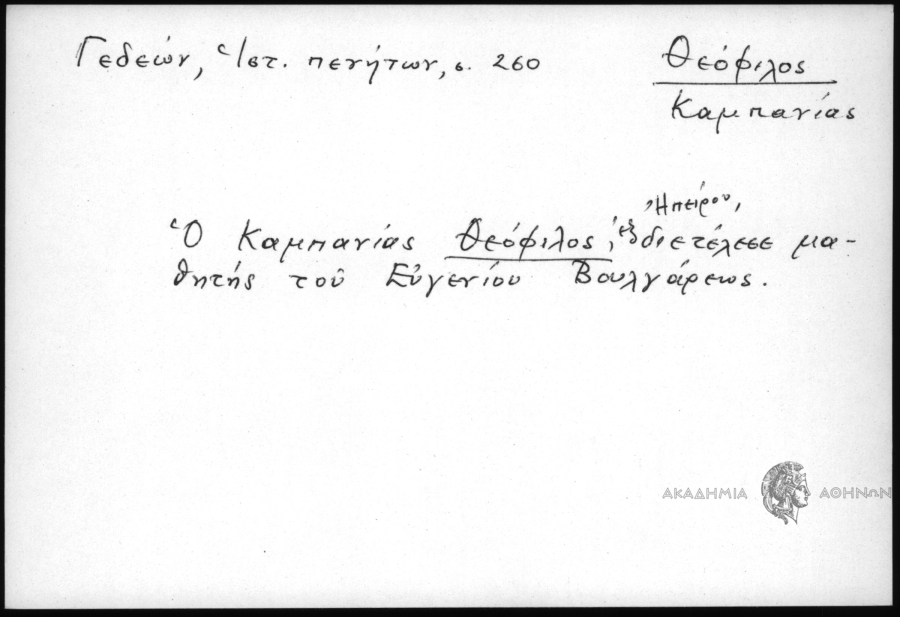 Γεδεών, Ἱστ. πενήτων, σ. 260
Θεόφιλος
Καμπανίας
Ὁ Καμπανίας Θεόφιλος, ἐξ Ἠπείρου, διετέλεσε μα-
θητής τοῦ Εὐγενίου Βουλγάρεως.
ΑΚΑΔΗΜΙΑ ΑΘΗΝΩΝ